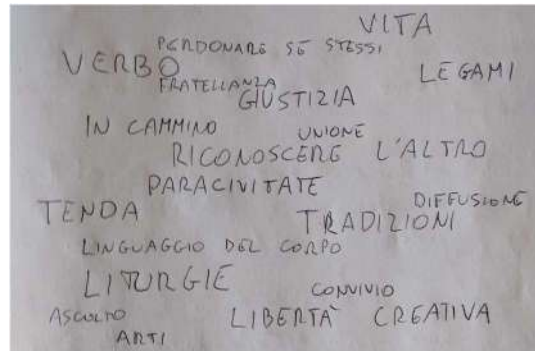 VITA
PERDONARE SE STESSI
VERBO
LEGAMI
FRATELLANZA
GIUSTIZIA
IN CAMMINO
UNIONE
RICONOSCERE L'ALTRO
PARACIVITATE
DIFFUSIONE
TENDA
TRADIZIONI
LINGUAGGIO DEL CORPO
LITURGIE
CONVIVIO
ASCOLTO
LIBERTÀ CREATIVA
ARTI